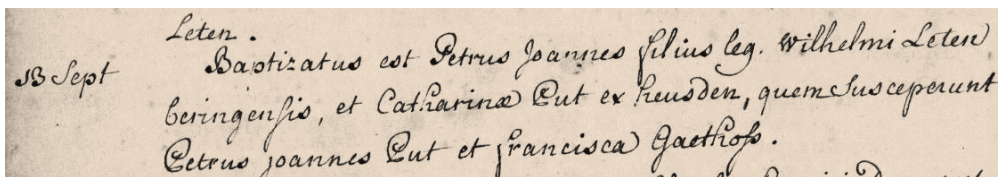 Leten.
13 Sept Baptizatus est Petrus Joannes filius leg. Wilhelmi Leten
beringensis, et Catharinæ Put ex heusden, quem susceperunt
Petrus joannes Put et francisca Gaethofs.